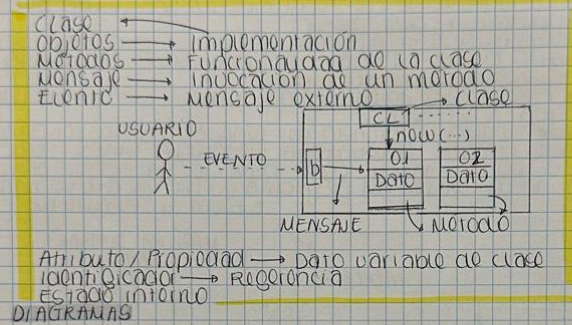 Clase
Objetos → Implementación
Métodos → Funcionalidad de la clase
Mensaje → Invocación de un método
Evento → Mensaje externo
CL1 → clase
new(...)
USUARIO
EVENTO
b
O1
Dato
O2
Dato
MENSAJE
Método
Atributo/Propiedad → Dato variable de clase
Identificador → Referencia
Estado interno
DIAGRAMAS